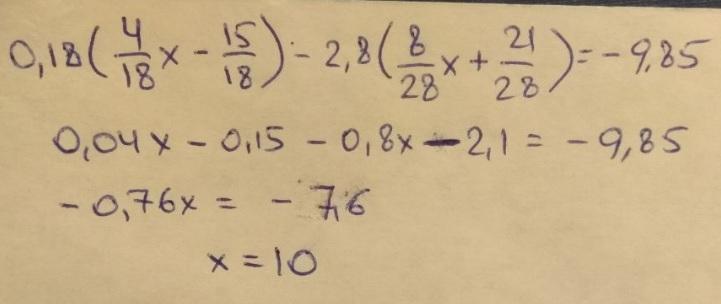 0,18(4/18x - 15/18) - 2,8(8/28x + 21/28) = -9,85
0,04x - 0,15 - 0,8x - 2,1 = -9,85
-0,76x = -7,6
x = 10